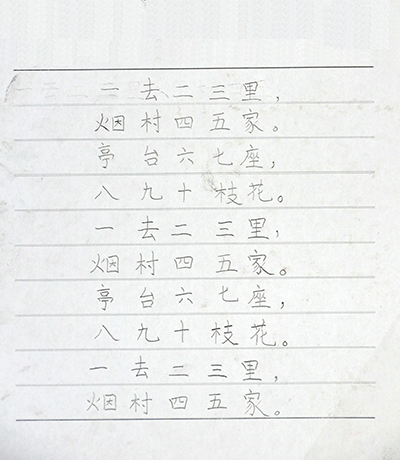 一去二三里，
烟村四五家。
亭台六七座，
八九十枝花。
一去二三里，
烟村四五家。
亭台六七座，
八九十枝花。
一去二三里，
烟村四五家。